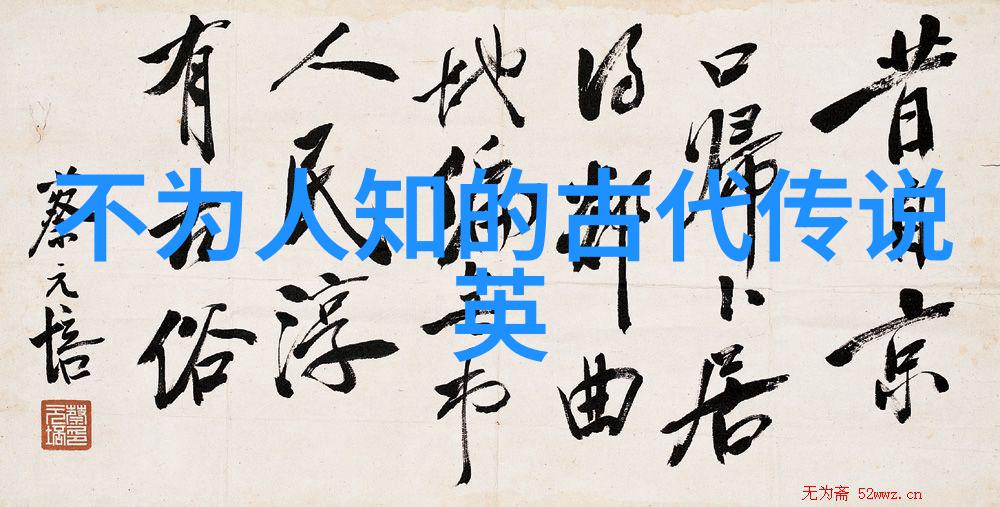 不为人知的古代传说
英
昔自京
口歸卜居
得邨曲
地偏市
人民淳
有古俗
蔡元培
无为斋 52wwz.cn